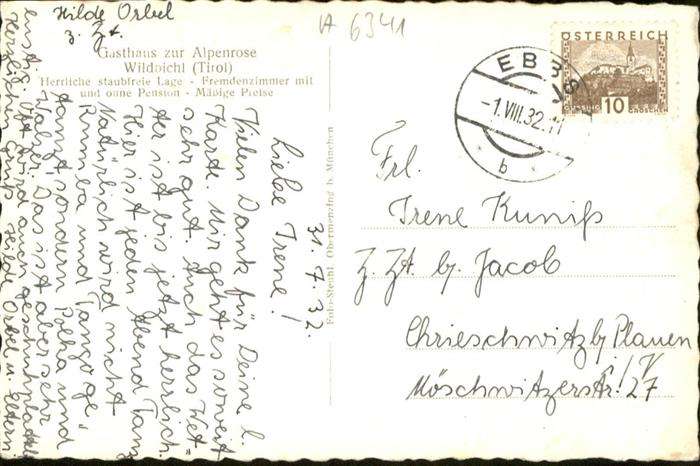 Hilde Orbel
z. Zt.
A 6341
Gasthaus zur Alpenrose
Wildbichl (Tirol)
Herrliche staubfreie Lage - Fremdenzimmer mit
und ohne Pension - Mäßige Preise
31. 7. 32.
Liebe Irene!
Vielen Dank für Deine l.
Karte. Mir geht es soweit
sehr gut. Auch das Wet=
ter ist bis jetzt herrlich.
Hier ist jeden Abend Tanz
Natürlich wird nicht
Rumba und Tango ge=
tanzt sondern Polka und
Walzer. Das ist aber sehr
ernst. wird auch geschuhplattelt
Herzlichen Gruß Hilde Orbel u. Eltern
Foto-Stenhl Obermenzing b. München
ÖSTERREICH
10
GROSCHEN
EBBS
-1.VIII.32.
b
Frl.
Irene Kuniß
z. Zt. b. Jacob
Chrieschwitz b/ Plauen
i/V
Möschwitzerstr. 27